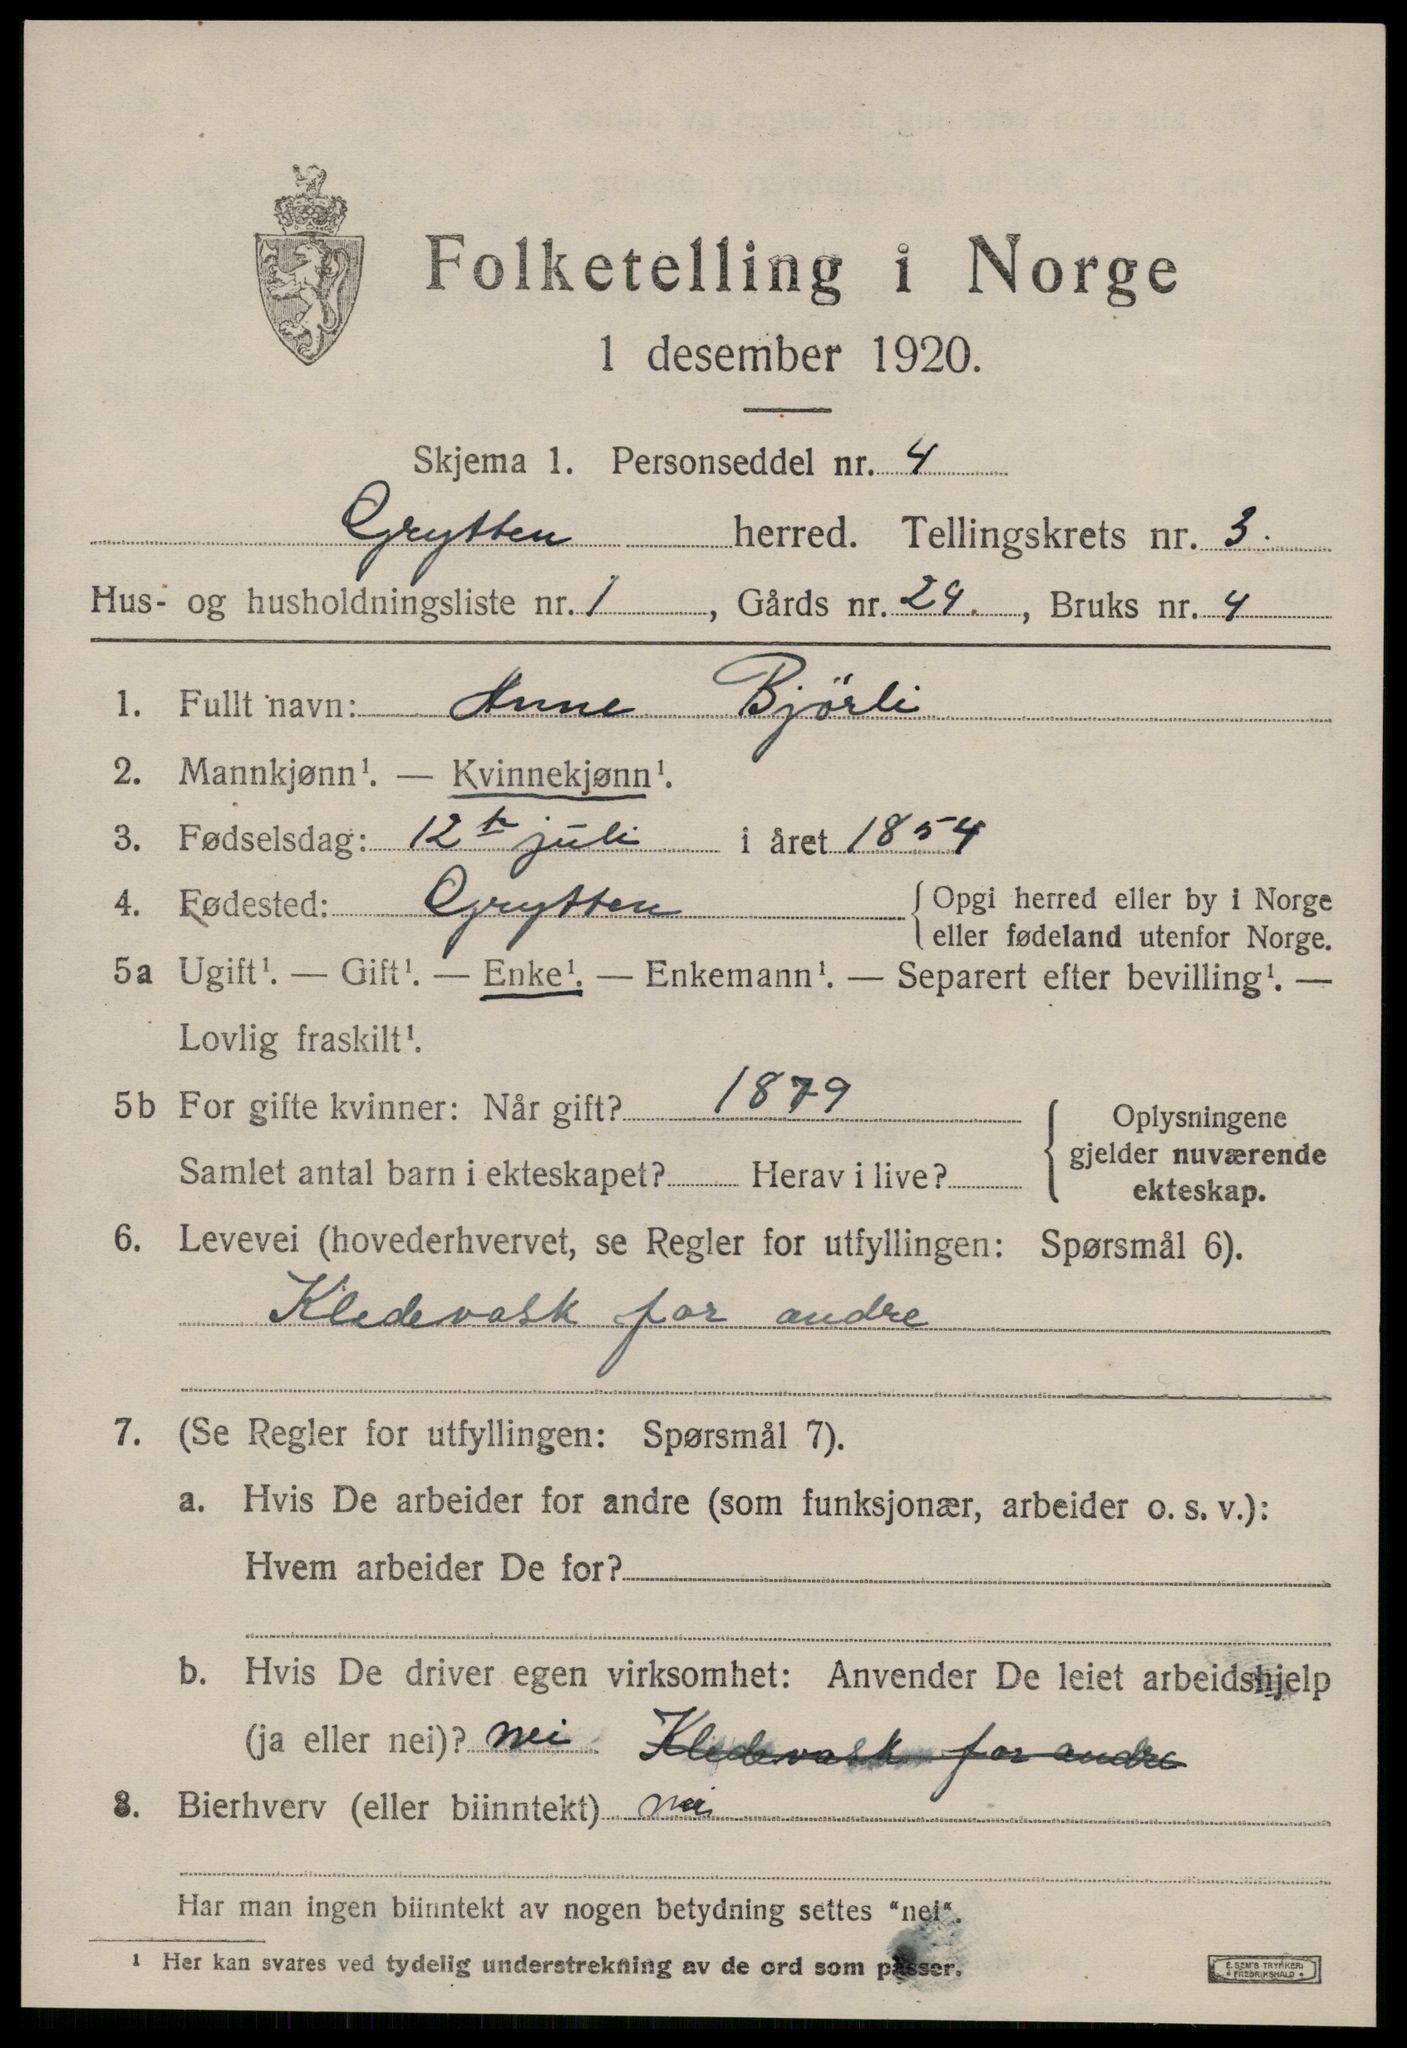 Folketelling i Norge
1 desember 1920.
Skjema 1. Personseddel nr. 4
Grytten herred. Tellingskrets nr. 3.
Hus- og husholdningsliste nr. 1, Gårds nr. 24., Bruks nr. 4
1. Fullt navn: Anne Bjørli
2. Mannkjønn¹. — Kvinnekjønn¹.
3. Fødselsdag: 12te juli i året 1854
4. Fødested: Grytten { Opgi herred eller by i Norge
eller fødeland utenfor Norge.
5a Ugift¹. — Gift¹. — Enke¹. — Enkemann¹. — Separert efter bevilling¹. —
Lovlig fraskilt¹.
5b For gifte kvinner: Når gift? 1879
Samlet antal barn i ekteskapet? Herav i live?
Oplysningene
gjelder nuværende
ekteskap.
6. Levevei (hovederhvervet, se Regler for utfyllingen: Spørsmål 6).
Kledevask for andre
7. (Se Regler for utfyllingen: Spørsmål 7).
a. Hvis De arbeider for andre (som funksjonær, arbeider o. s. v.):
Hvem arbeider De for?
b. Hvis De driver egen virksomhet: Anvender De leiet arbeidshjelp
(ja eller nei)? nei Kledevask for andre
8. Bierhverv (eller biinntekt) nei
Har man ingen biinntekt av nogen betydning settes "nei".
¹ Her kan svares ved tydelig understrekning av de ord som passer.
E. SEM'S TRYKKERI
FREDRIKSHALD